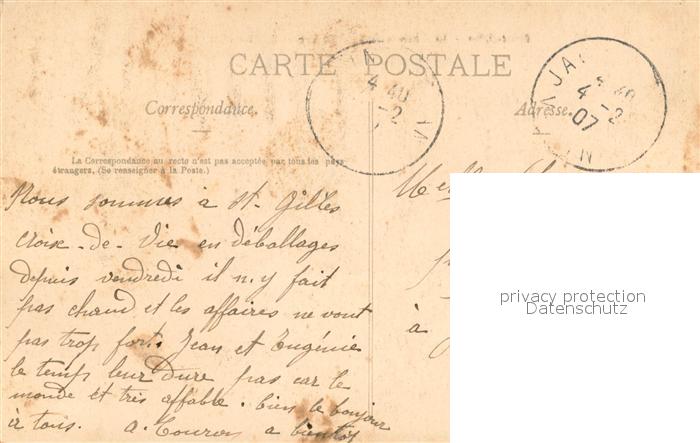 CARTE POSTALE
Correspondance.
Adresse.
La Correspondance au recto n'est pas acceptée par tous les pays
étrangers. (Se renseigner à la Poste.)
Nous sommes à St. Gilles
Croix-de-Vie en déballages
depuis vendredi il n.y fait
pas chaud et les affaires ne vont
pas trop fort. Jean et Eugénie
le temps leur dure pas car le
monde est très affable. bien le bonjour
à tous. a bientôt
Melle
à
4 40
-2
4 -2
07
privacy protection
Datenschutz